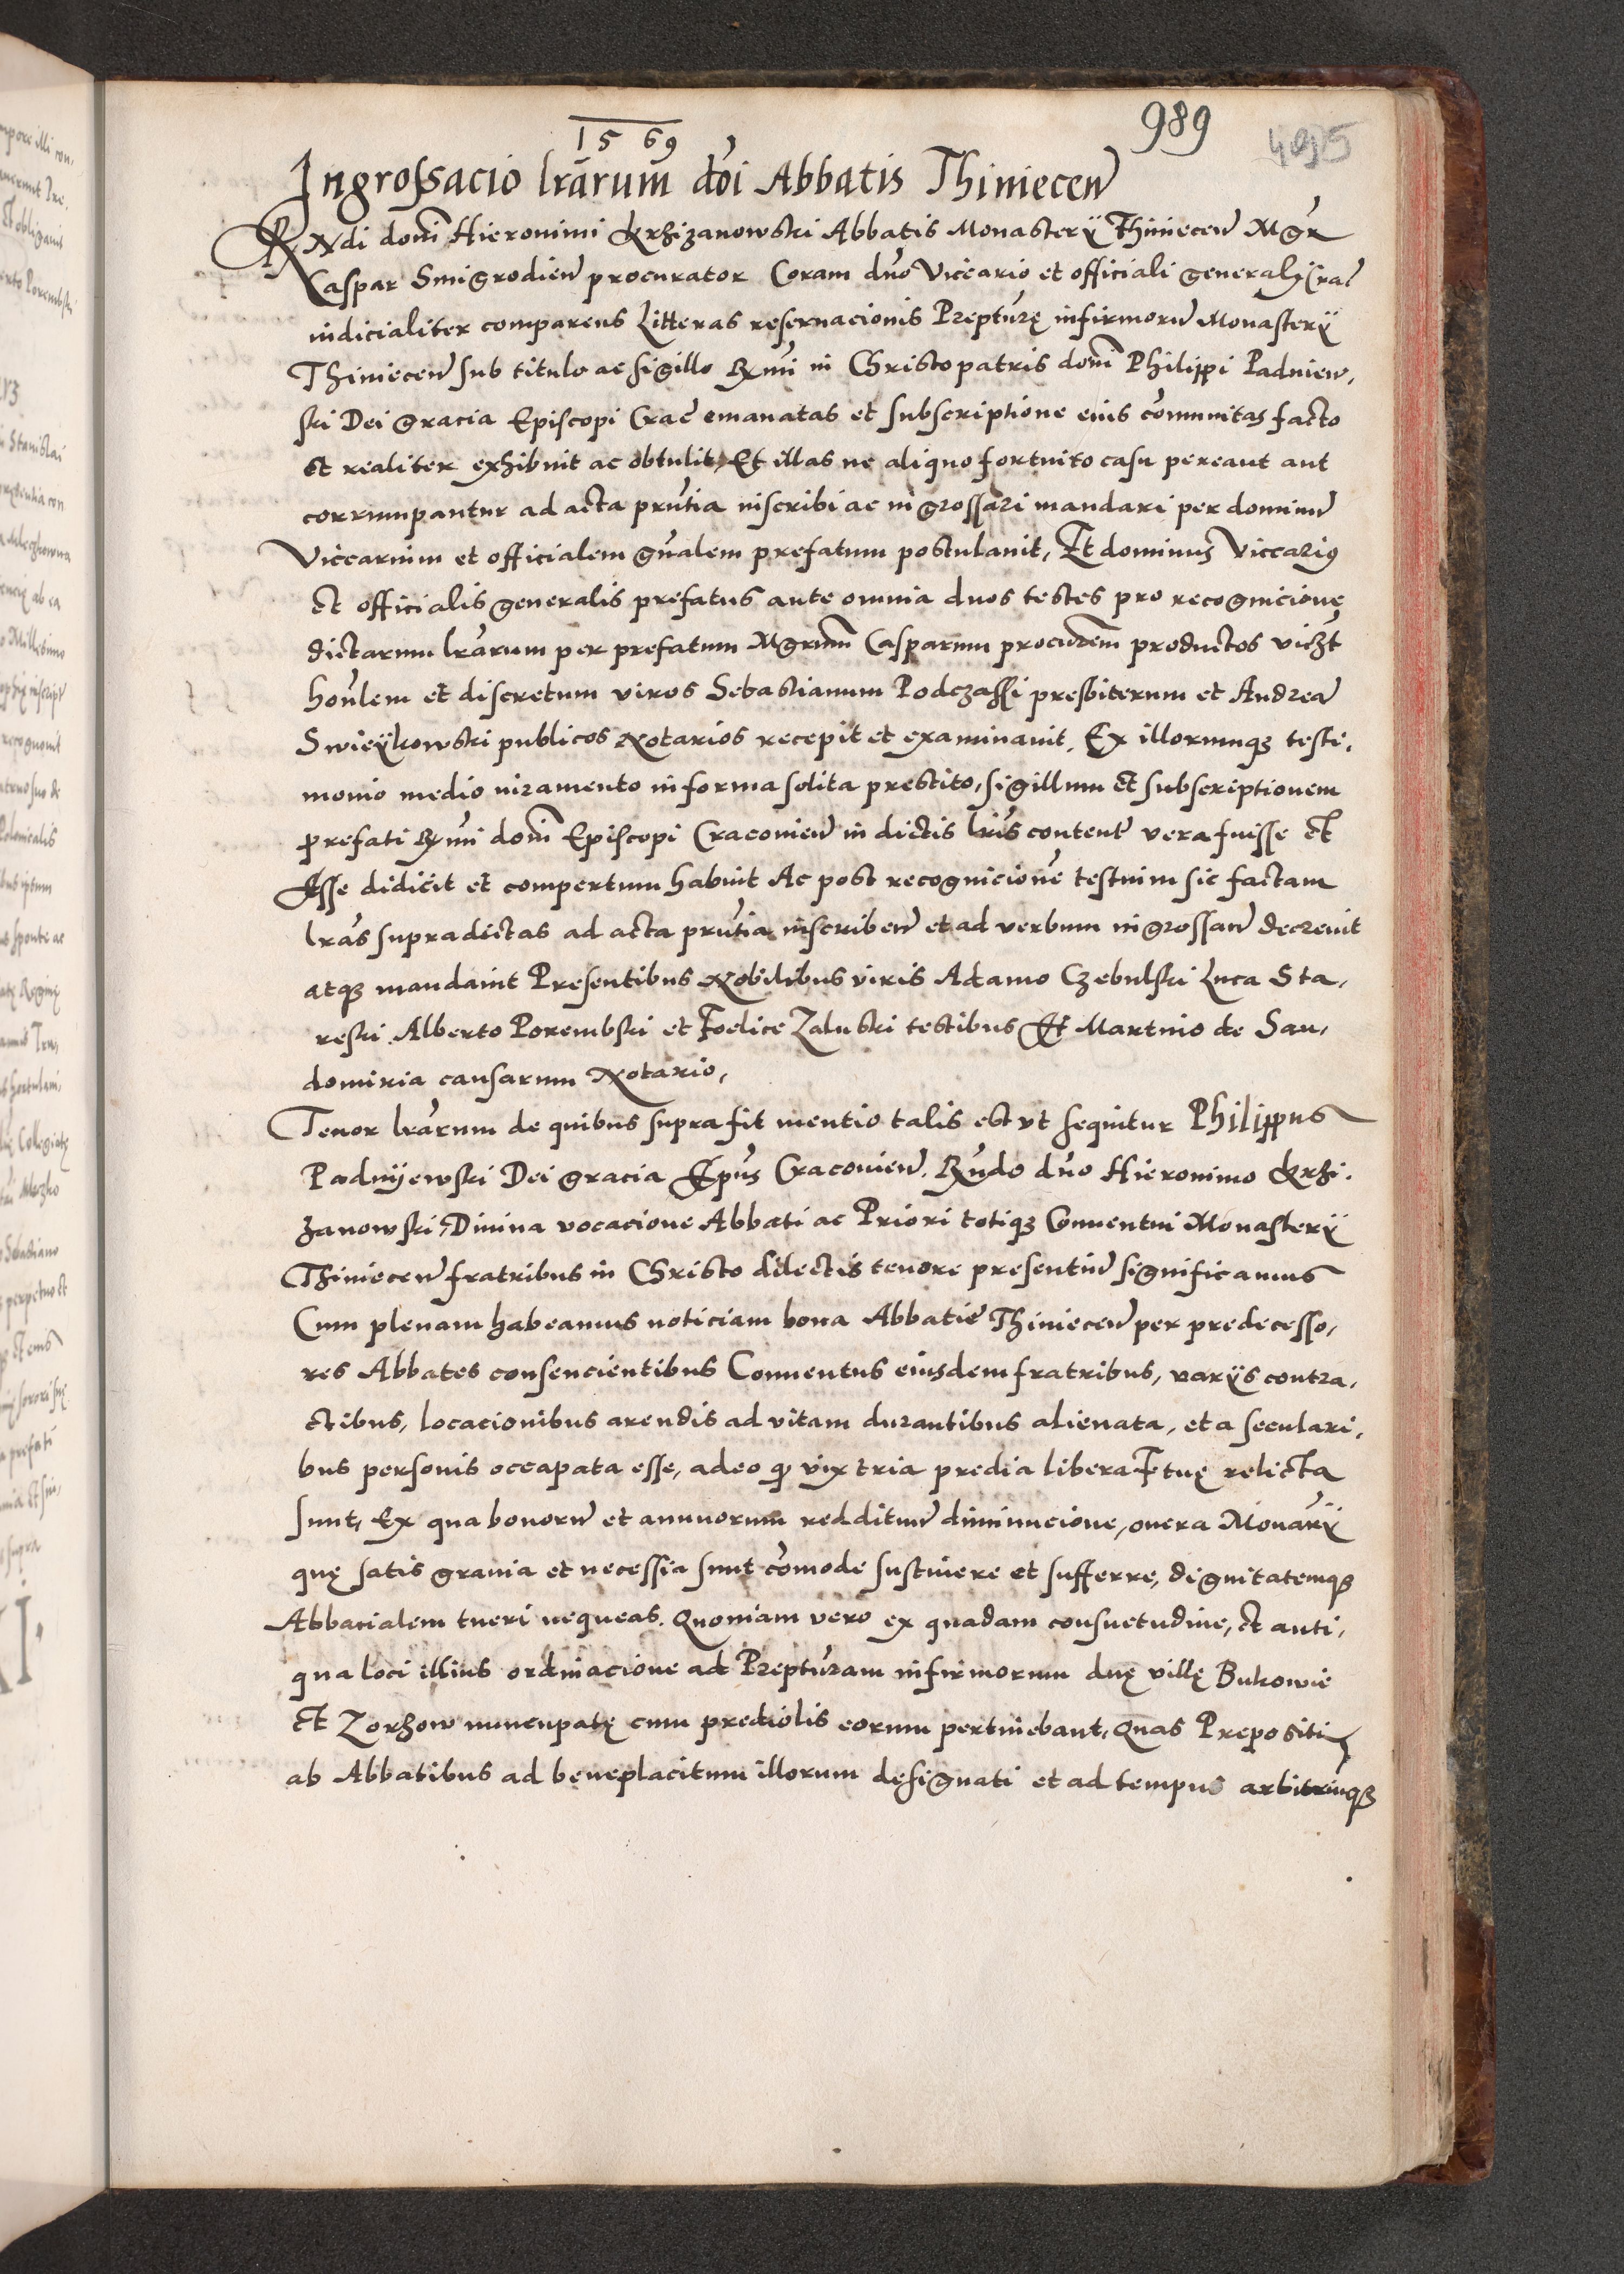 1569
989
4095
Ingrossacio lrarum doi Abbatis Thiniecen
RNdi doni Hieronimi Krzizanowski Abbatis Monasterÿ Thiniecen Mgr
Caspar Smigrodien procurator Coram dno Viccario et officiali generali Crac
iudicialiter comparens Litteras reseruacionis Prepturę infirmorum Monasterÿ
Thiniecen sub titulo ac sigillo Rmi in Christo patris doni Philippi Padniew,
ski Dei gracia Episcopi Crac emanatas et subscriptione eius communitas facto
et realiter exhibuit ac obtulit, Et illas ne aliquo fortuito casu pereant aut
corrumpantur ad acta pruntia inscribi ac ingrossari mandari per dominum
Viccarium et officialem gnalem prefatum postulauit, Et dominus Viccarius
et officialis generalis prefatus ante omnia duos testes pro recognicione
dictarum lrarum per prefatum Mgrum Casparum procurem productos viczt
honlem et discretum viros Sebastianum Podczassi presbiterum et Andream
Swieÿkowski publicos Notarios recepit et examinauit, Ex illorumqz testi,
monio medio iuramento in forma solita prestito, sigillum et subscriptionem
prefati Rmi doni Episcopi Cracouien in dictis lris content vera fuisse et
Esse didicit et compertum habuit Ac post recognicionem testium sic factam
lras supradictas ad acta pruntia inscriben et ad verbum ingrossan decreuit
atqz mandauit Presentibus Nobilibus viris Adamo Czebulski Luca Sta,
reski Alberto Porembski et Foelice Zaluski testibus Et Martino de San,
domiria causarum Notario,
Tenor lrarum de quibus supra fit mentio talis est vt sequitur Philippus
Padnÿewski Dei gracia Epus Cracouien. Rndo dno Hieronimo Krzi.
zanowski, Diuina vocacione Abbati ac Priori totiqz Conuentui Monasterÿ
Thiniecen fratribus in Christo dilectis tenore presentium significamus
Cum plenam habeamus noticiam bona Abbatie Thiniecen per predecesso,
res Abbates consencientibus Conuentus eiusdem fratribus, varÿs contra,
ctibus, locacionibus arendis ad vitam durantibus alienata, et a seculari,
bus personis occapata esse, adeo q vix tria predia libera Ftuę relicta
sunt, Ex qua bonorum et annuorum reddituum diminucione, onera Monarÿ
quę satis grauia et necessia sunt comode sustinere et sufferre, dignitatemqz
Abbacialem tueri nequeas. Quoniam vero ex quadam consuetudine, et anti,
qua loci illius ordinacione ad Prepturam infirmorum duę villę Bukowie
et Zorzow nuncupatę cum prediolis eorum pertinebant, Quas Prepositi
ab Abbatibus ad beneplacitum illorum designati et ad tempus arbitriumqz